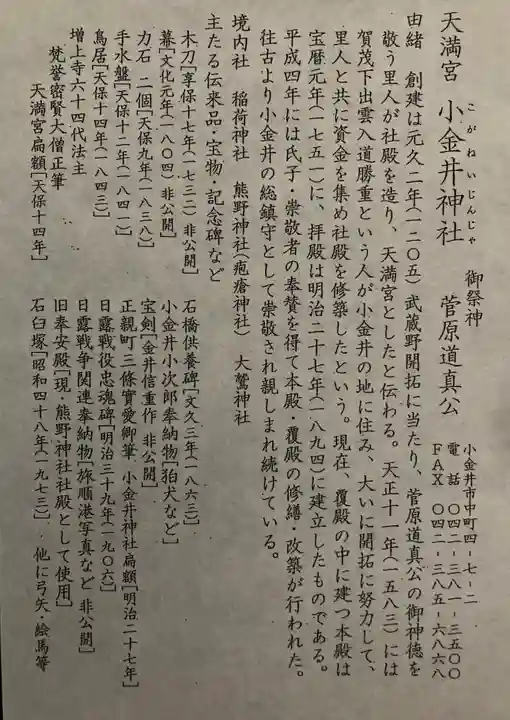 天満宮　小金井神社
こがねいじんじゃ
御祭神　菅原道真公
小金井市中町四-七-二
電話　〇四二-三八一-三五〇〇
FAX　〇四二-三八五-六八六八
由緒　創建は元久二年(一二〇五)武蔵野開拓に当たり、菅原道真公の御神徳を
敬う里人が社殿を造り、天満宮としたと伝わる。天正十一年(一五八三)には
賀茂下出雲入道勝重という人が小金井の地に住み、大いに開拓に努力して、
里人と共に資金を集め社殿を修築したという。現在、覆殿の中に建つ本殿は
宝暦元年(一七五一)に、拝殿は明治二十七年(一八九四)に建立したものである。
平成四年には氏子・崇敬者の奉賛を得て本殿・覆殿の修繕・改築が行われた。
往古より小金井の総鎮守として崇敬され親しまれ続けている。
境内社　稲荷神社　熊野神社(疱瘡神社)　大鷲神社
主たる伝来品・宝物・記念碑など
木刀[享保十七年(一七三二)非公開]
幕[文化元年(一八〇四)非公開]
力石　二個[天保九年(一八三八)]
手水盤[天保十二年(一八四一)]
鳥居[天保十四年(一八四三)]
増上寺六十四代法主
梵誉密賢大僧正筆
天満宮扁額[天保十四年]
石橋供養碑[文久三年(一八六三)]
小金井小次郎奉納物[狛犬など]
宝剣[金井信重作　非公開]
正親町三條實愛卿筆　小金井神社扁額[明治二十七年]
日露戦役忠魂碑[明治三十九年(一九〇六)]
日露戦争関連奉納物[旅順港写真など　非公開]
旧奉安殿[現・熊野神社社殿として使用]
石臼塚[昭和四十八年(一九七三)]　他に弓矢・絵馬等